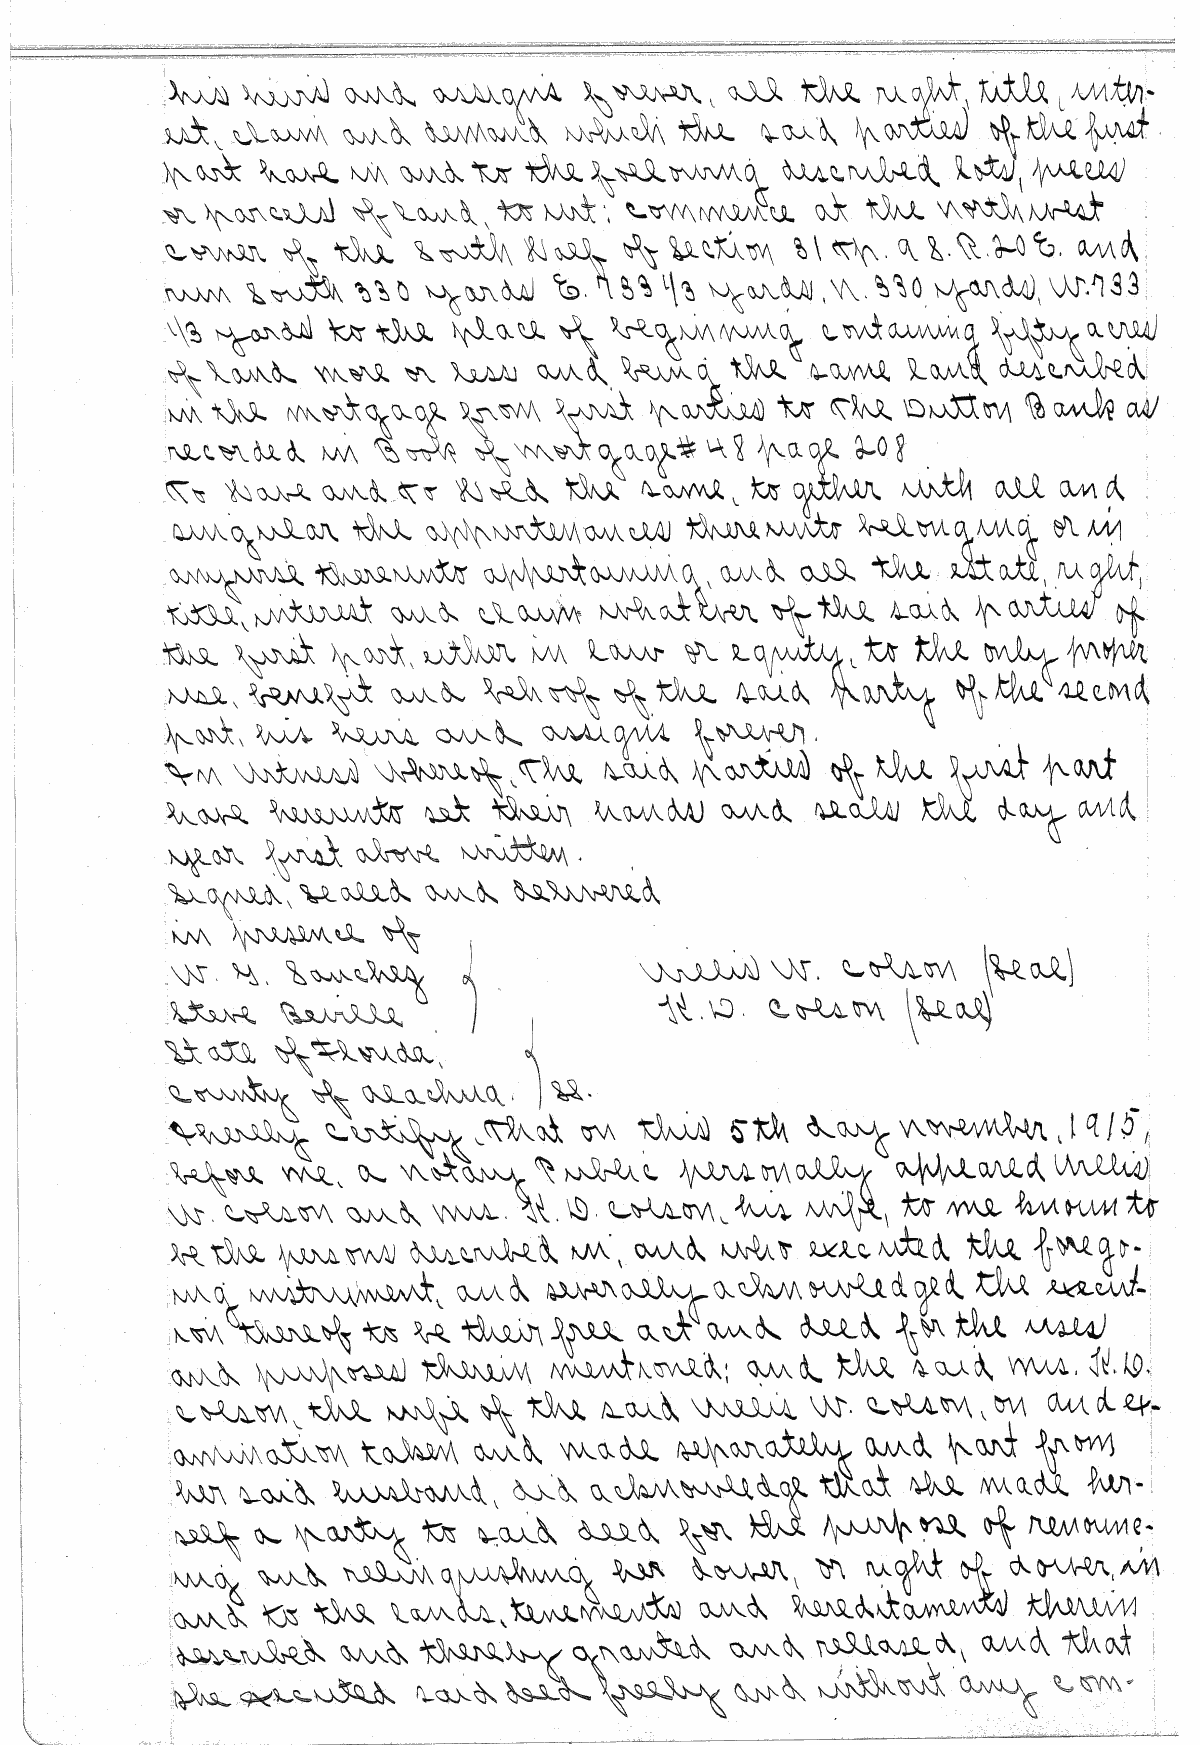 his heirs and assigns forever, all the right, title, inter-
est, claim and demand which the said parties of the first
part have in and to the following described lots, pieces
or parcels of land, to wit: commence at the northwest
corner of the South Half of Section 31 Tp. 9 S. R. 20 E. and
run South 330 yards E. 733 1/3 yards, N. 330 yards, W. 733
1/3 yards to the place of beginning containing fifty acres
of land more or less and being the same land described
in the mortgage from first parties to The Dutton Bank as
recorded in Book of mortgage # 48 page 208
To Have and To Hold the same, together with all and
singular the appurtenances thereunto belonging or in
anywise thereunto appertaining, and all the estate, right,
title, interest and claim whatever of the said parties of
the first part, either in law or equity, to the only proper
use, benefit and behoof of the said party of the second
part, his heirs and assigns forever.
In Witness Whereof, The said parties of the first part
have hereunto set their hands and seals the day and
year first above written.
Signed, Sealed and delivered
in presence of
W. G. Sanchez
Willis W. Colson (Seal)
Steve Beville
K. D. Colson (Seal)
State of Florida,
County of Alachua. ss.
I hereby certify, That on this 5th day november, 1915,
before me, a notary Public personally appeared Willis
W. Colson and mrs. K. D. Colson, his wife, to me known to
be the persons described in, and who executed the forego-
ing instrument, and severally acknowledged the execut-
ion thereof to be their free act and deed for the uses
and purposes therein mentioned; and the said mrs. K. D.
Colson, the wife of the said Willis W. Colson, on and ex-
amination taken and made separately and part from
her said husband, did acknowledge that she made her-
self a party to said deed for the purpose of renounc-
ing and relinquishing her dower, or right of dower, in
and to the lands, tenements and hereditaments therein
described and thereby granted and released, and that
she executed said deed freely and without any com-